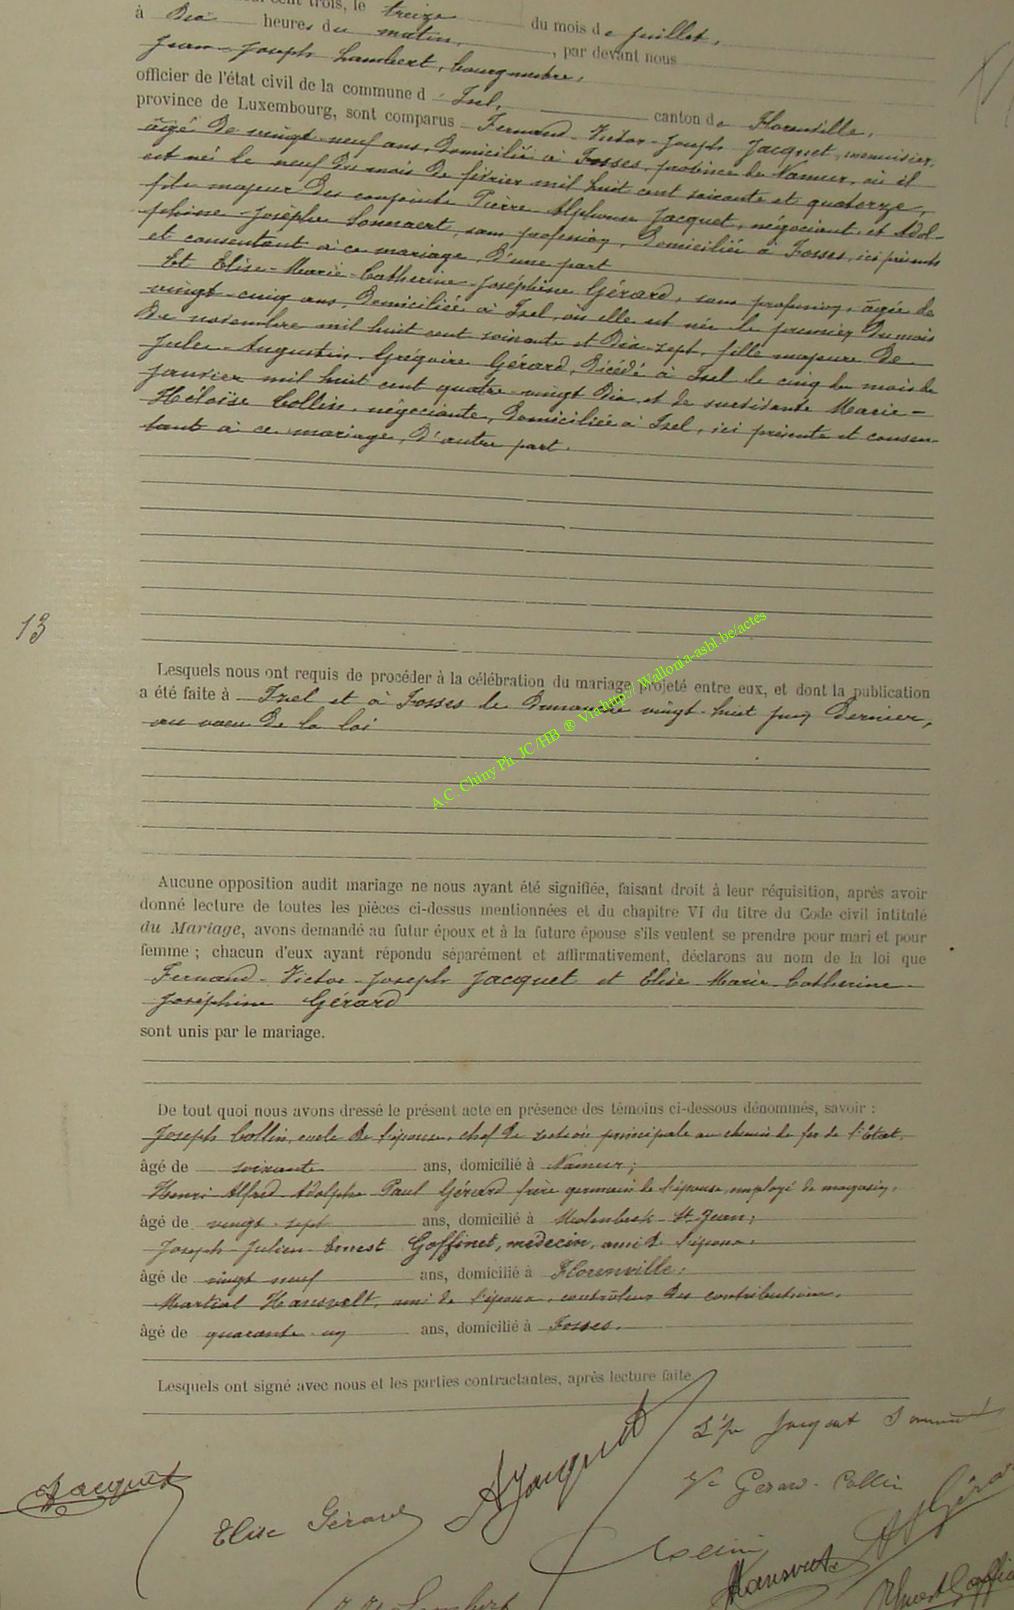 cent trois, le treize du mois de juillet,
à dix heures du matin, par devant nous
Jean-Joseph Lambert, bourgmestre,
officier de l'état civil de la commune d'Izel, canton de Florenville,
province de Luxembourg, sont comparus Fernand-Victor-Joseph Jacquet, menuisier,
âgé de vingt-neuf ans, domicilié à Fosses, province de Namur, où il
est né le neuf du mois de février mil huit cent soixante et quatorze,
fils majeur des conjoints Pierre Alphonse Jacquet, négociant, et Adol-
phine-Josèphe Sonnaert, sans profession, domiciliés à Fosses, ici présents
et consentant à ce mariage, d'une part
Et Elise-Marie-Catherine-Joséphine Gérard, sans profession, âgée de
vingt-cinq ans, domiciliée à Izel, où elle est née le premier du mois
de novembre mil huit cent soixante et dix-sept, fille majeure de
Jules-Augustin-Grégoire Gérard, décédé à Izel le cinq du mois de
janvier mil huit cent quatre-vingt dix, et de survivante Marie-
Héloïse Collin, négociante, domiciliée à Izel, ici présente et consen-
tant à ce mariage, d'autre part.
13
Lesquels nous ont requis de procéder à la célébration du mariage projeté entre eux, et dont la publication
a été faite à Izel et à Fosses le dimanche vingt-huit juin dernier,
au voeu de la loi
A.C. Chiny Ph. JC/HB ® Via http:// Wallonia-asbl.be/actes
Aucune opposition audit mariage ne nous ayant été signifiée, faisant droit à leur réquisition, après avoir
donné lecture de toutes les pièces ci-dessus mentionnées et du chapitre VI du titre du Code civil intitulé
du Mariage, avons demandé au futur époux et à la future épouse s'ils veulent se prendre pour mari et pour
femme ; chacun d'eux ayant répondu séparément et affirmativement, déclarons au nom de la loi que
Fernand-Victor-Joseph Jacquet et Elise-Marie-Catherine-
Joséphine Gérard
sont unis par le mariage.
De tout quoi nous avons dressé le présent acte en présence des témoins ci-dessous dénommés, savoir :
Joseph Collin, oncle de l'épouse, chef de section principale au chemin de fer de l'Etat,
âgé de soixante ans, domicilié à Namur ;
Henri Alfred Adolphe Paul Gérard frère germain de l'épouse, employé de magasin,
âgé de vingt-sept ans, domicilié à Molenbeek-St-Jean ;
Joseph-Julien-Ernest Goffinet, médecin, ami de l'époux,
âgé de vingt neuf ans, domicilié à Florenville ;
Martial Hansvelt, ami de l'époux, contrôleur des contributions,
âgé de quarante-un ans, domicilié à Fosses.
Lesquels ont signé avec nous et les parties contractantes, après lecture faite
Jacquet
Elise Gérard
A Jacquet
Jacquet
Ve Gérard-Collin
Gérard
Lambert